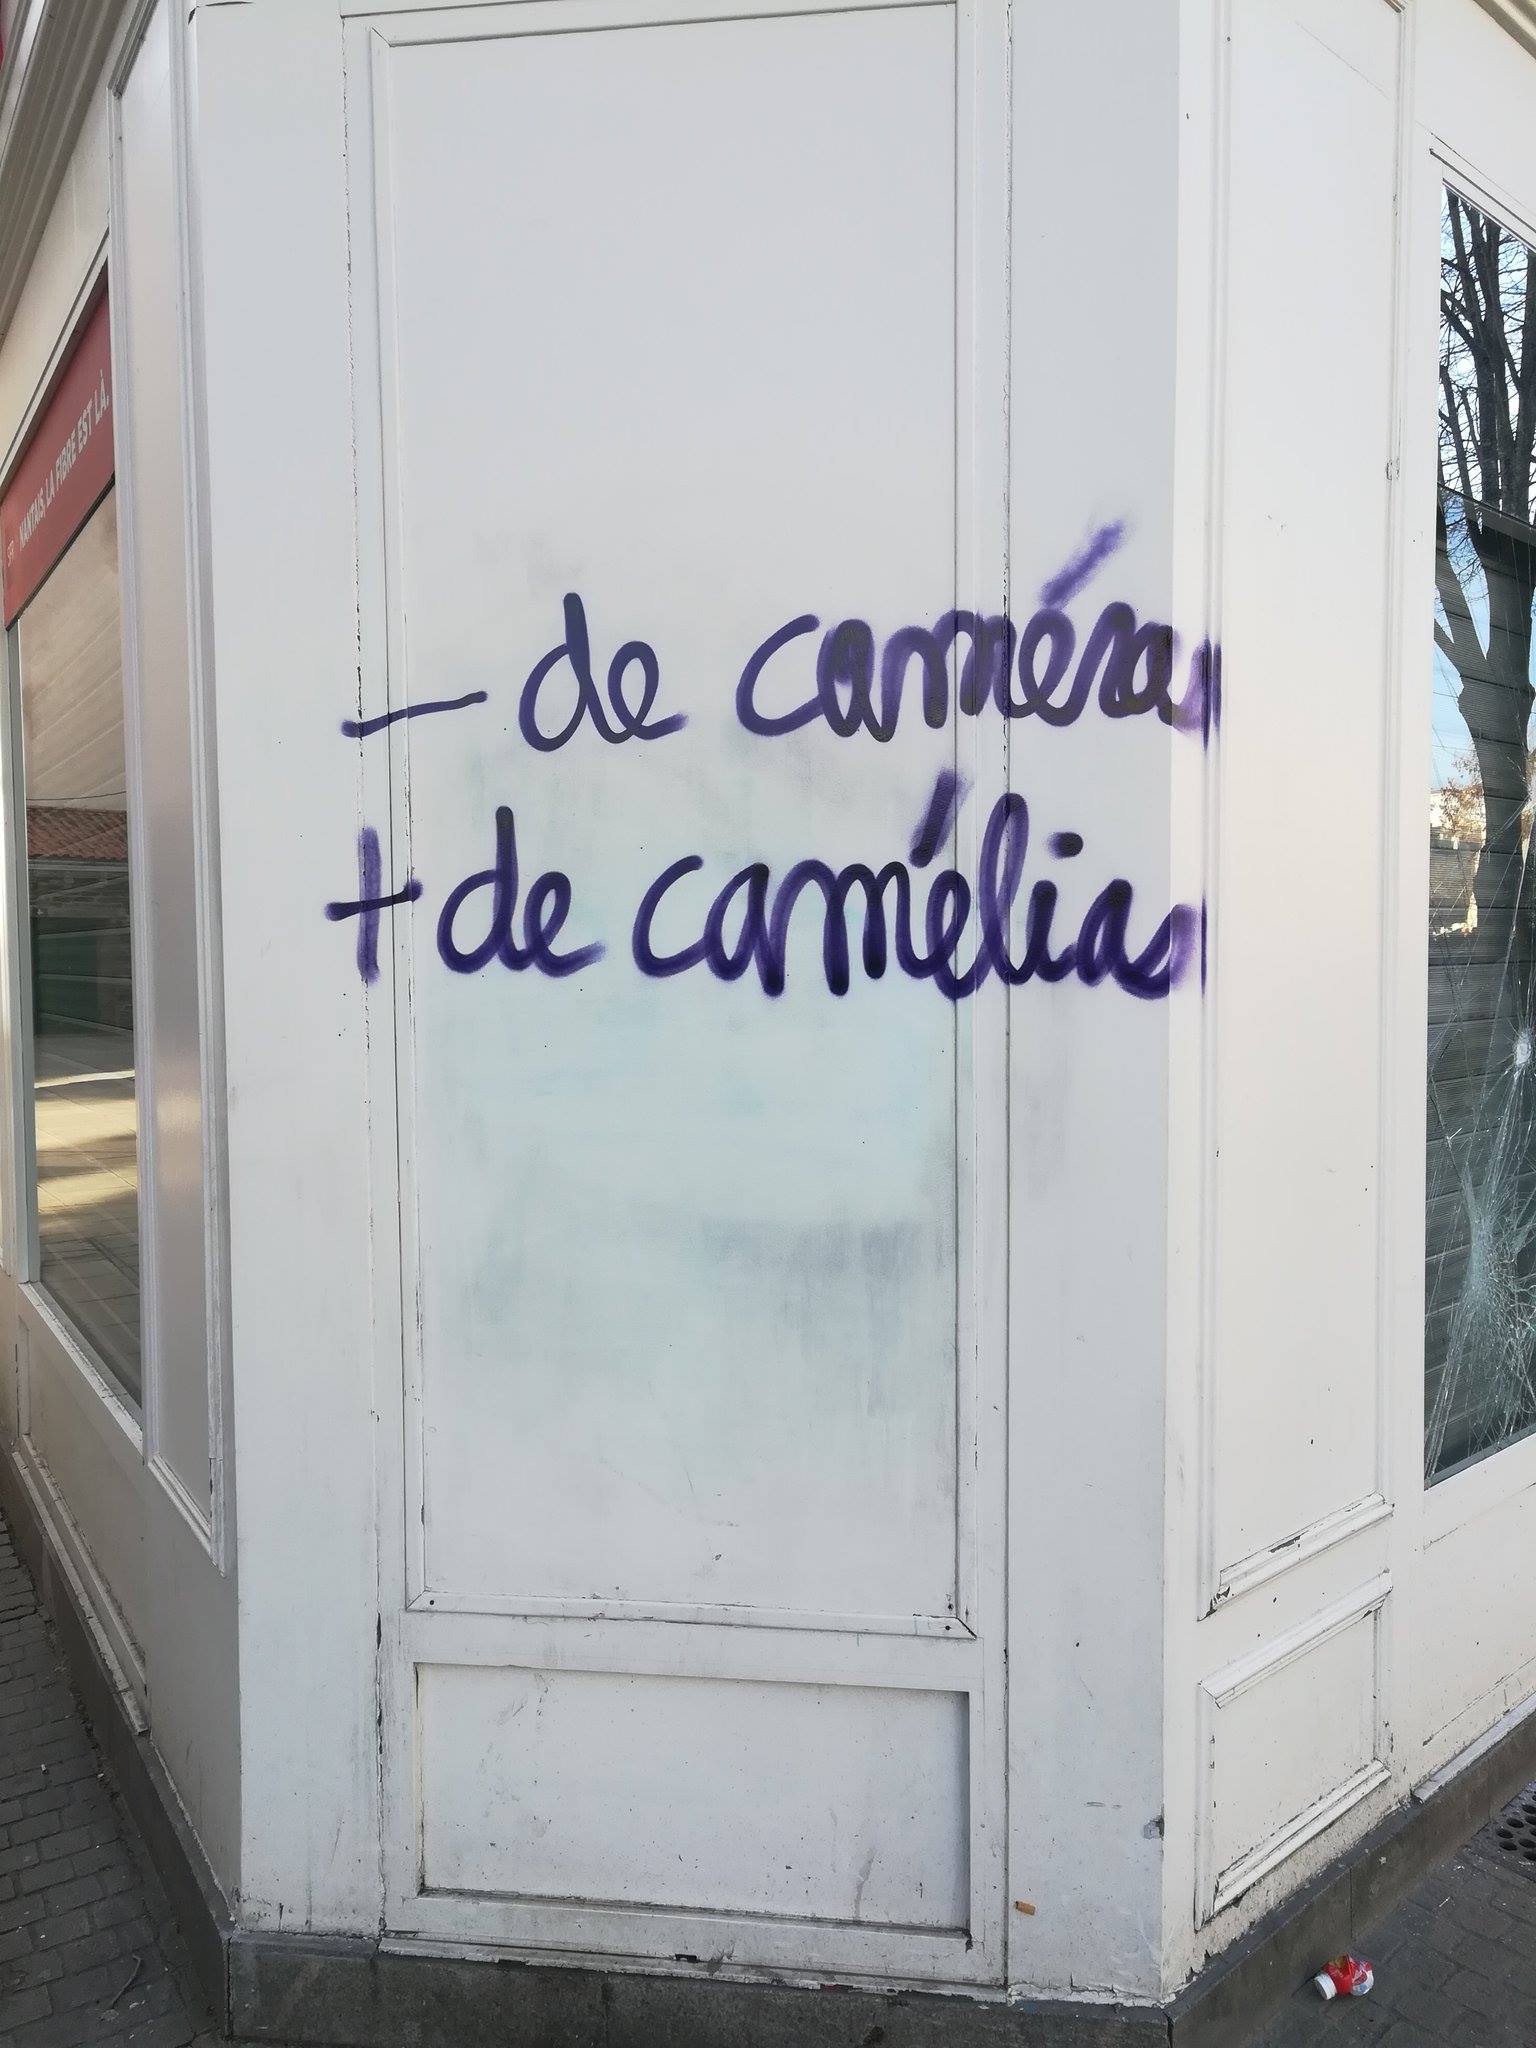 SFR NANTAIS, LA FIBRE EST LÀ.
- de caméras
+ de camélias